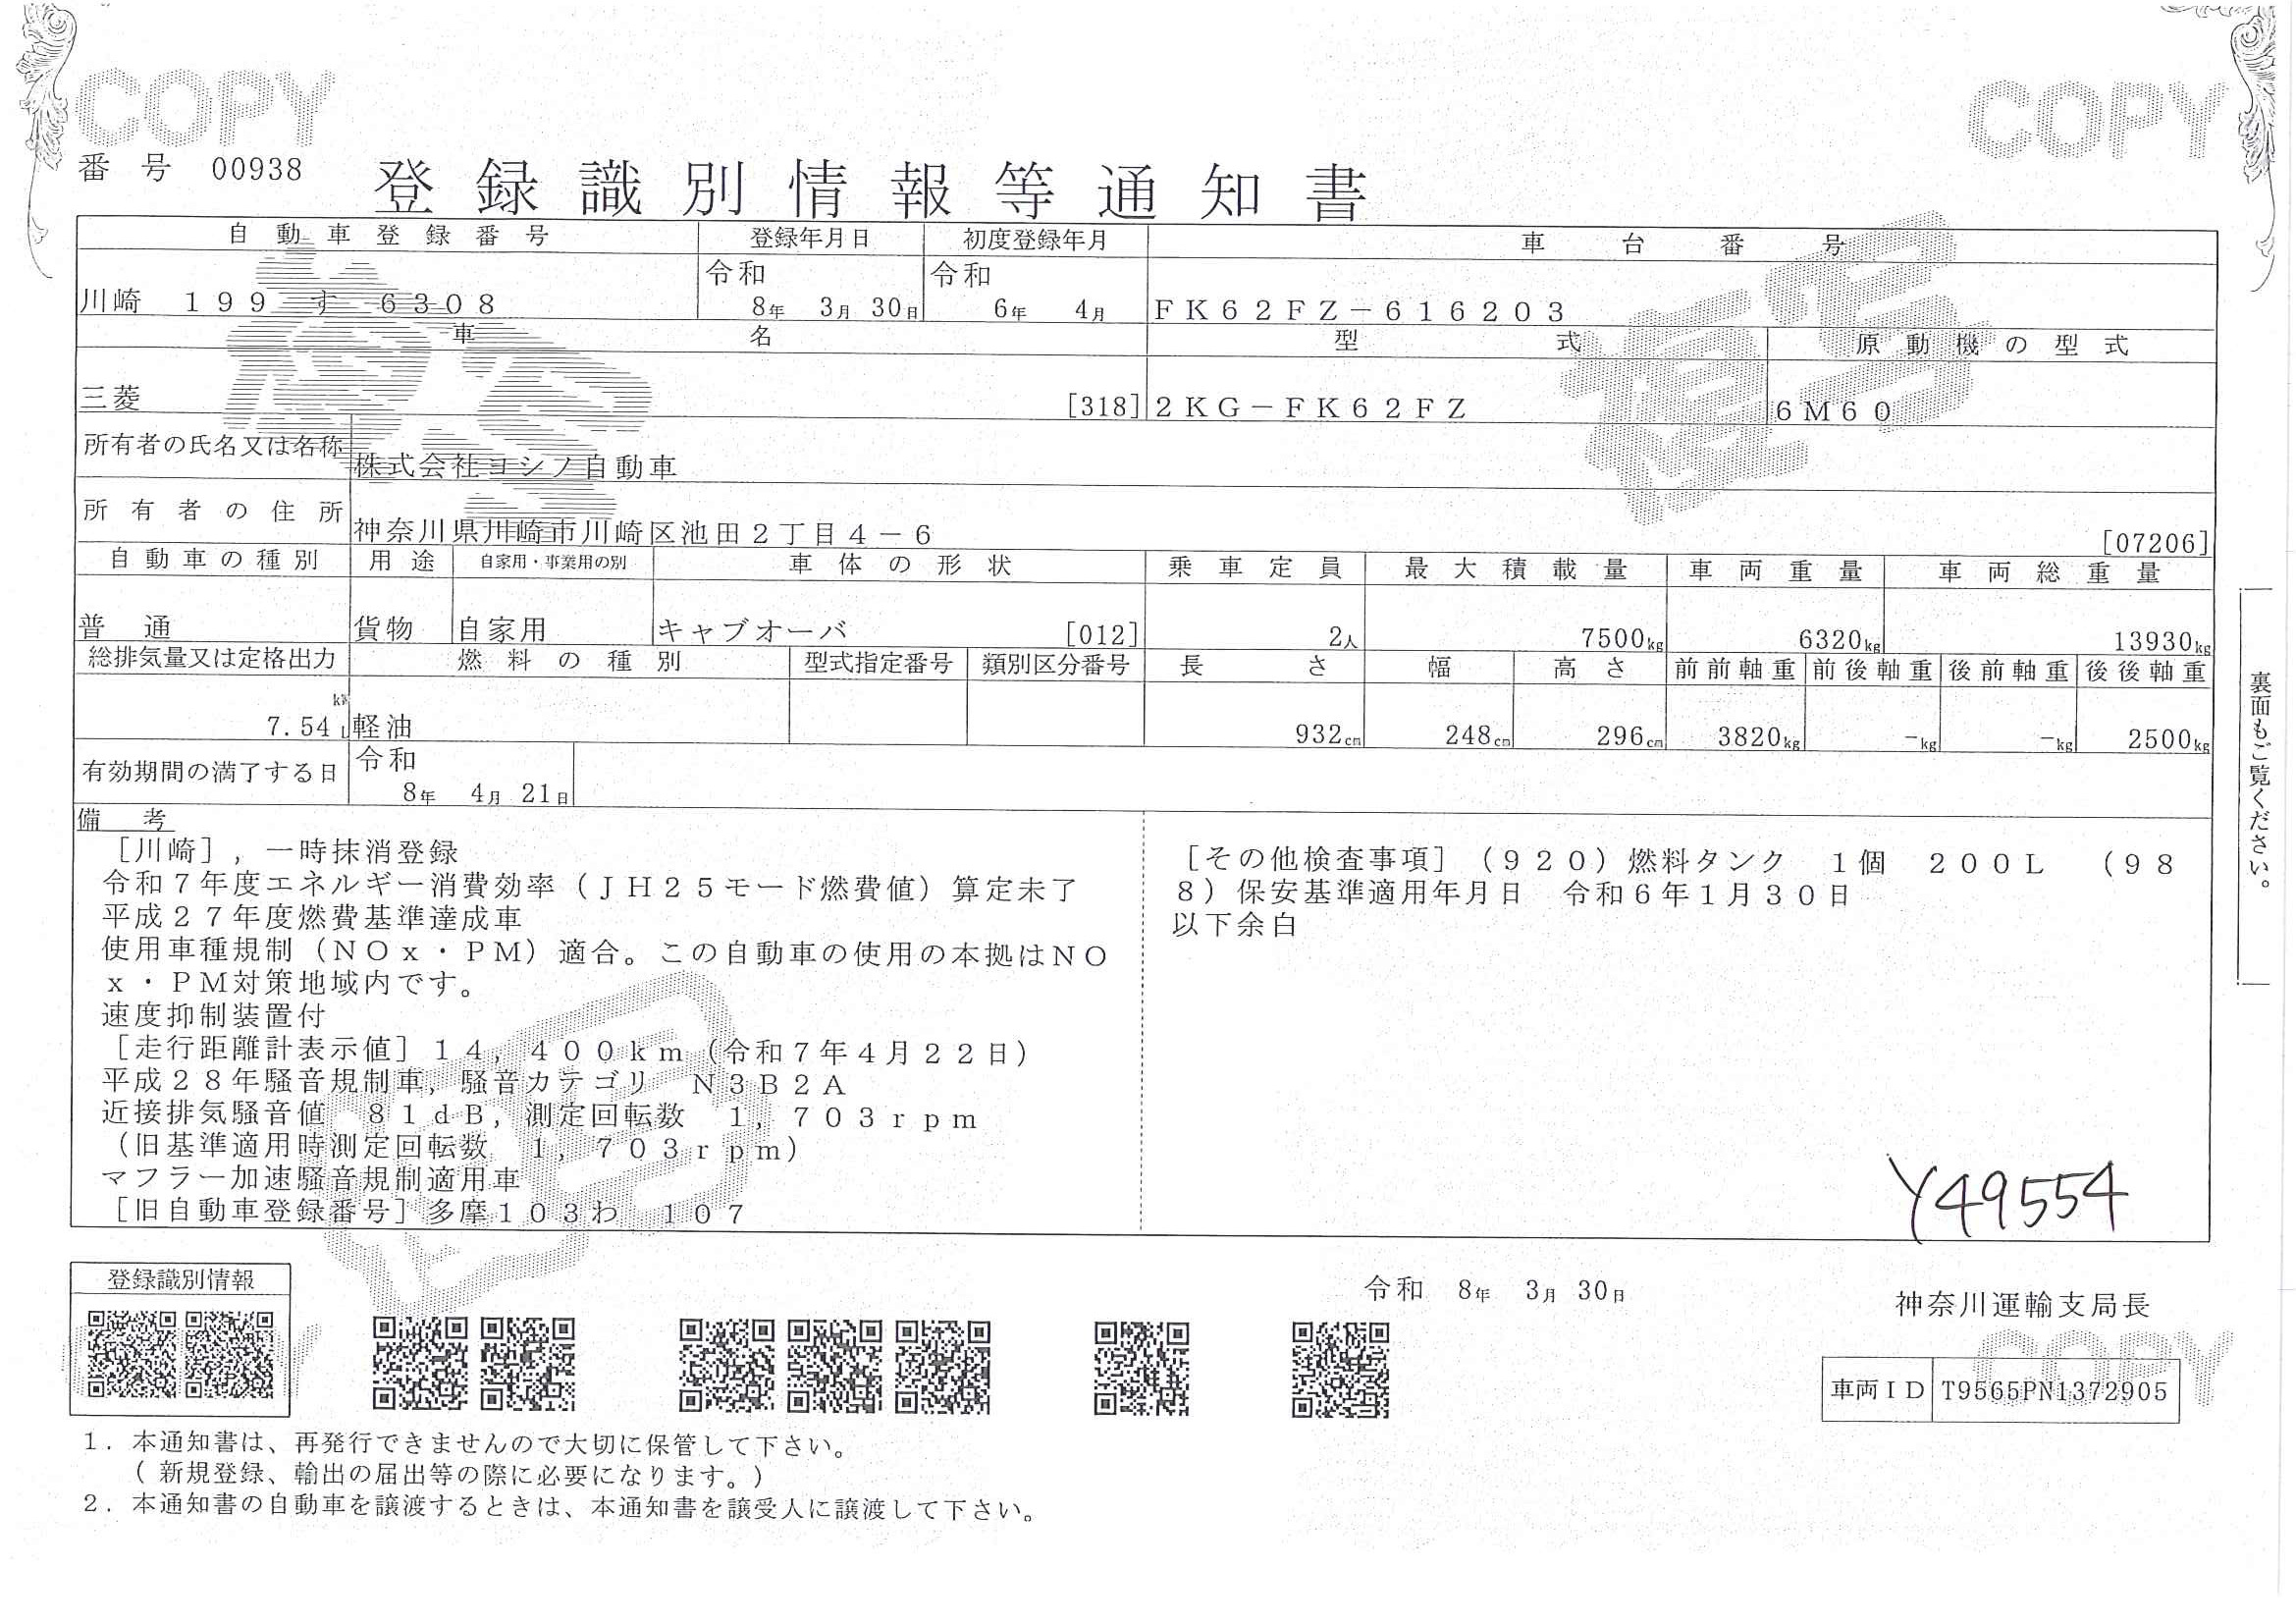 COPY COPY
番号 00938 登録識別情報等通知書
自動車登録番号 登録年月日 初度登録年月 車台番号
川崎 199 す 6308 令和 8年 3月 30日 令和 6年 4月 FK62FZ-616203
車名 型式 原動機の型式
三菱 [318] 2KG-FK62FZ 6M60
所有者の氏名又は名称 株式会社ヨシノ自動車
所有者の住所 神奈川県川崎市川崎区池田2丁目4-6 [07206]
自動車の種別 用途 自家用・事業用の別 車体の形状 乗車定員 最大積載量 車両重量 車両総重量
普通 貨物 自家用 キャブオーバ [012] 2人 7500kg 6320kg 13930kg
総排気量又は定格出力 燃料の種別 型式指定番号 類別区分番号 長さ 幅 高さ 前前軸重 前後軸重 後前軸重 後後軸重
7.54 kW L 軽油 932cm 248cm 296cm 3820kg -kg -kg 2500kg
有効期間の満了する日 令和 8年 4月 21日
備考
[川崎],一時抹消登録
令和7年度エネルギー消費効率(JH25モード燃費値)算定未了
平成27年度燃費基準達成車
使用車種規制(NOx・PM)適合。この自動車の使用の本拠はNO
x・PM対策地域内です。
速度抑制装置付
[走行距離計表示値]14,400km(令和7年4月22日)
平成28年騒音規制車,騒音カテゴリ N3B2A
近接排気騒音値 81dB,測定回転数 1,703rpm
(旧基準適用時測定回転数 1,703rpm)
マフラー加速騒音規制適用車
[旧自動車登録番号]多摩103わ 107
[その他検査事項](920)燃料タンク 1個 200L (98
8)保安基準適用年月日 令和6年1月30日
以下余白
Y49554
裏面もご覧ください。
登録識別情報
令和 8年 3月 30日
神奈川運輸支局長
COPY
車両ID T9565PN1372905
1.本通知書は、再発行できませんので大切に保管して下さい。
(新規登録、輸出の届出等の際に必要になります。)
2.本通知書の自動車を譲渡するときは、本通知書を譲受人に譲渡して下さい。